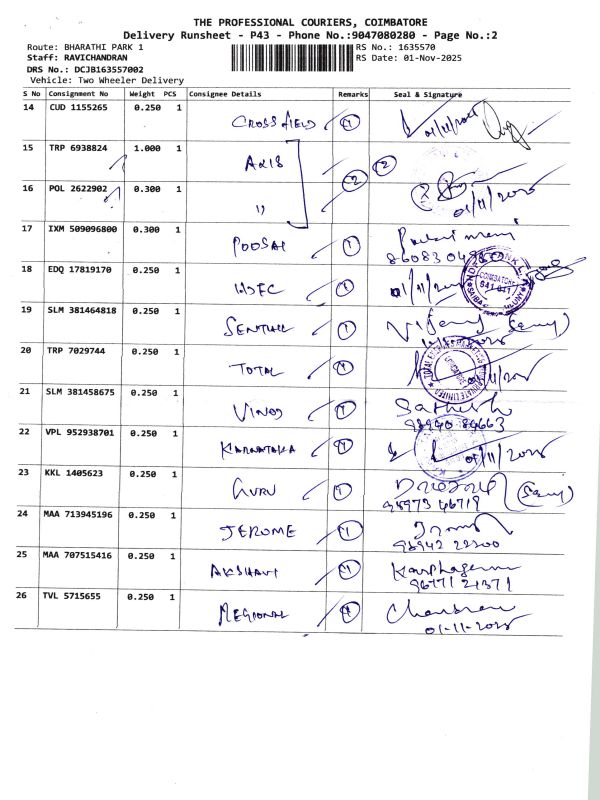 THE PROFESSIONAL COURIERS, COIMBATORE
Delivery Runsheet - P43 - Phone No.:9047080280 - Page No.:2
Route: BHARATHI PARK 1 RS No.: 1635570
Staff: RAVICHANDRAN RS Date: 01-Nov-2025
DRS No.: DCJB163557002
Vehicle: Two Wheeler Delivery
S No Consignment No Weight PCS Consignee Details Remarks Seal & Signature
14 CUD 1155265 0.250 1 CROSSFIELD 1 01/11/2025
15 TRP 6938824 1.000 1 AXIS 2 2
16 POL 2622902 0.300 1 " 01/11/2025
17 IXM 509096800 0.300 1 POOSAI 1
18 EDQ 17819170 0.250 1 HDFC 1 01/11/2025
COIMBATORE
641 011
19 SLM 381464818 0.250 1 1
20 TRP 7029744 0.250 1 TOTAL 1
21 SLM 381458675 0.250 1 VINOD 1 Sathish
22 VPL 952938701 0.250 1 KARNATAKA 1 01/11/2025
23 KKL 1405623 0.250 1 GURU 1
24 MAA 713945196 0.250 1 JEROME 1
25 MAA 707515416 0.250 1 AKSHAVI 1
26 TVL 5715655 0.250 1 REGIONAL 1 Chandran
01-11-2025